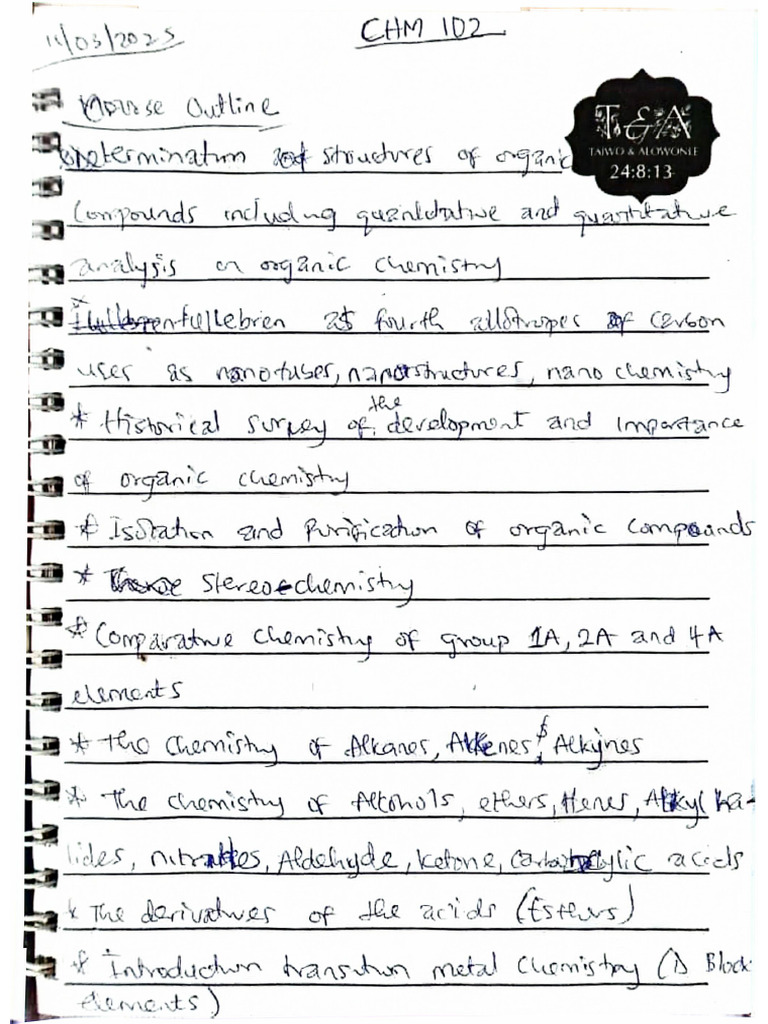 11/03/2025
CHM 102
Course Outline
T & A
TAIWO & ALOWONLE
24:8:13
Determination of structures of organic
compounds including quanlitative and quantitative
analysis on organic chemistry
* fullebren as fourth allotropes of carbon
uses as nanotubes, nanostructures, nano chemistry
* Historical survey of the development and importance
of organic chemistry
* Isolation and Purification of organic compounds
* Stereochemistry
* Comparative chemistry of group 1A, 2A and 4A
elements
* The Chemistry of Alkanes, Alkenes $ Alkynes
* The chemistry of Alcohols, ethers, Alkyl ha-
lides, nitrattes, Aldehyde, ketone, Carboxylic acids
* The derivatives of the acids (Esters)
* Introduction transition metal Chemistry (D Block
elements)